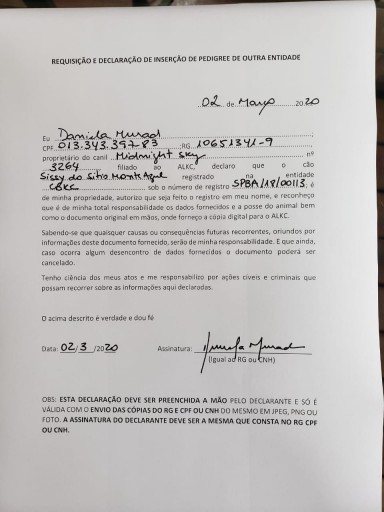 REQUISIÇÃO E DECLARAÇÃO DE INSERÇÃO DE PEDIGREE DE OUTRA ENTIDADE
02 de Março 2020
Eu Daniela Murad
CPF 013.343.397-83 RG 10651341-9
proprietário do canil Midnight Sky nº
3264 filiado ao ALKC, declaro que o cão
Sissy do Sitio Mont Azul registrado na entidade
CBKC sob o número de registro SPBA/18/00113 é
de minha propriedade, autorizo que seja feito o registro em meu nome, e reconheço
que é de minha total responsabilidade os dados fornecidos e a posse do animal bem
como o documento original em mãos, onde forneço a cópia digital para o ALKC.
Sabendo-se que quaisquer causas ou consequências futuras recorrentes, oriundos por
informações deste documento fornecido, serão de minha responsabilidade. E que ainda,
caso ocorra algum desencontro de dados fornecidos o documento poderá ser
cancelado.
Tenho ciência dos meus atos e me responsabilizo por ações cíveis e criminais que
possam recorrer sobre as informações aqui declaradas.
O acima descrito é verdade e dou fé
Data: 02/3/2020 Assinatura: Daniela Murad
(Igual ao RG ou CNH)
OBS: ESTA DECLARAÇÃO DEVE SER PREENCHIDA A MÃO PELO DECLARANTE E SÓ É
VÁLIDA COM O ENVIO DAS CÓPIAS DO RG E CPF OU CNH DO MESMO EM JPEG, PNG OU
FOTO. A ASSINATURA DO DECLARANTE DEVE SER A MESMA QUE CONSTA NO RG CPF
OU CNH.